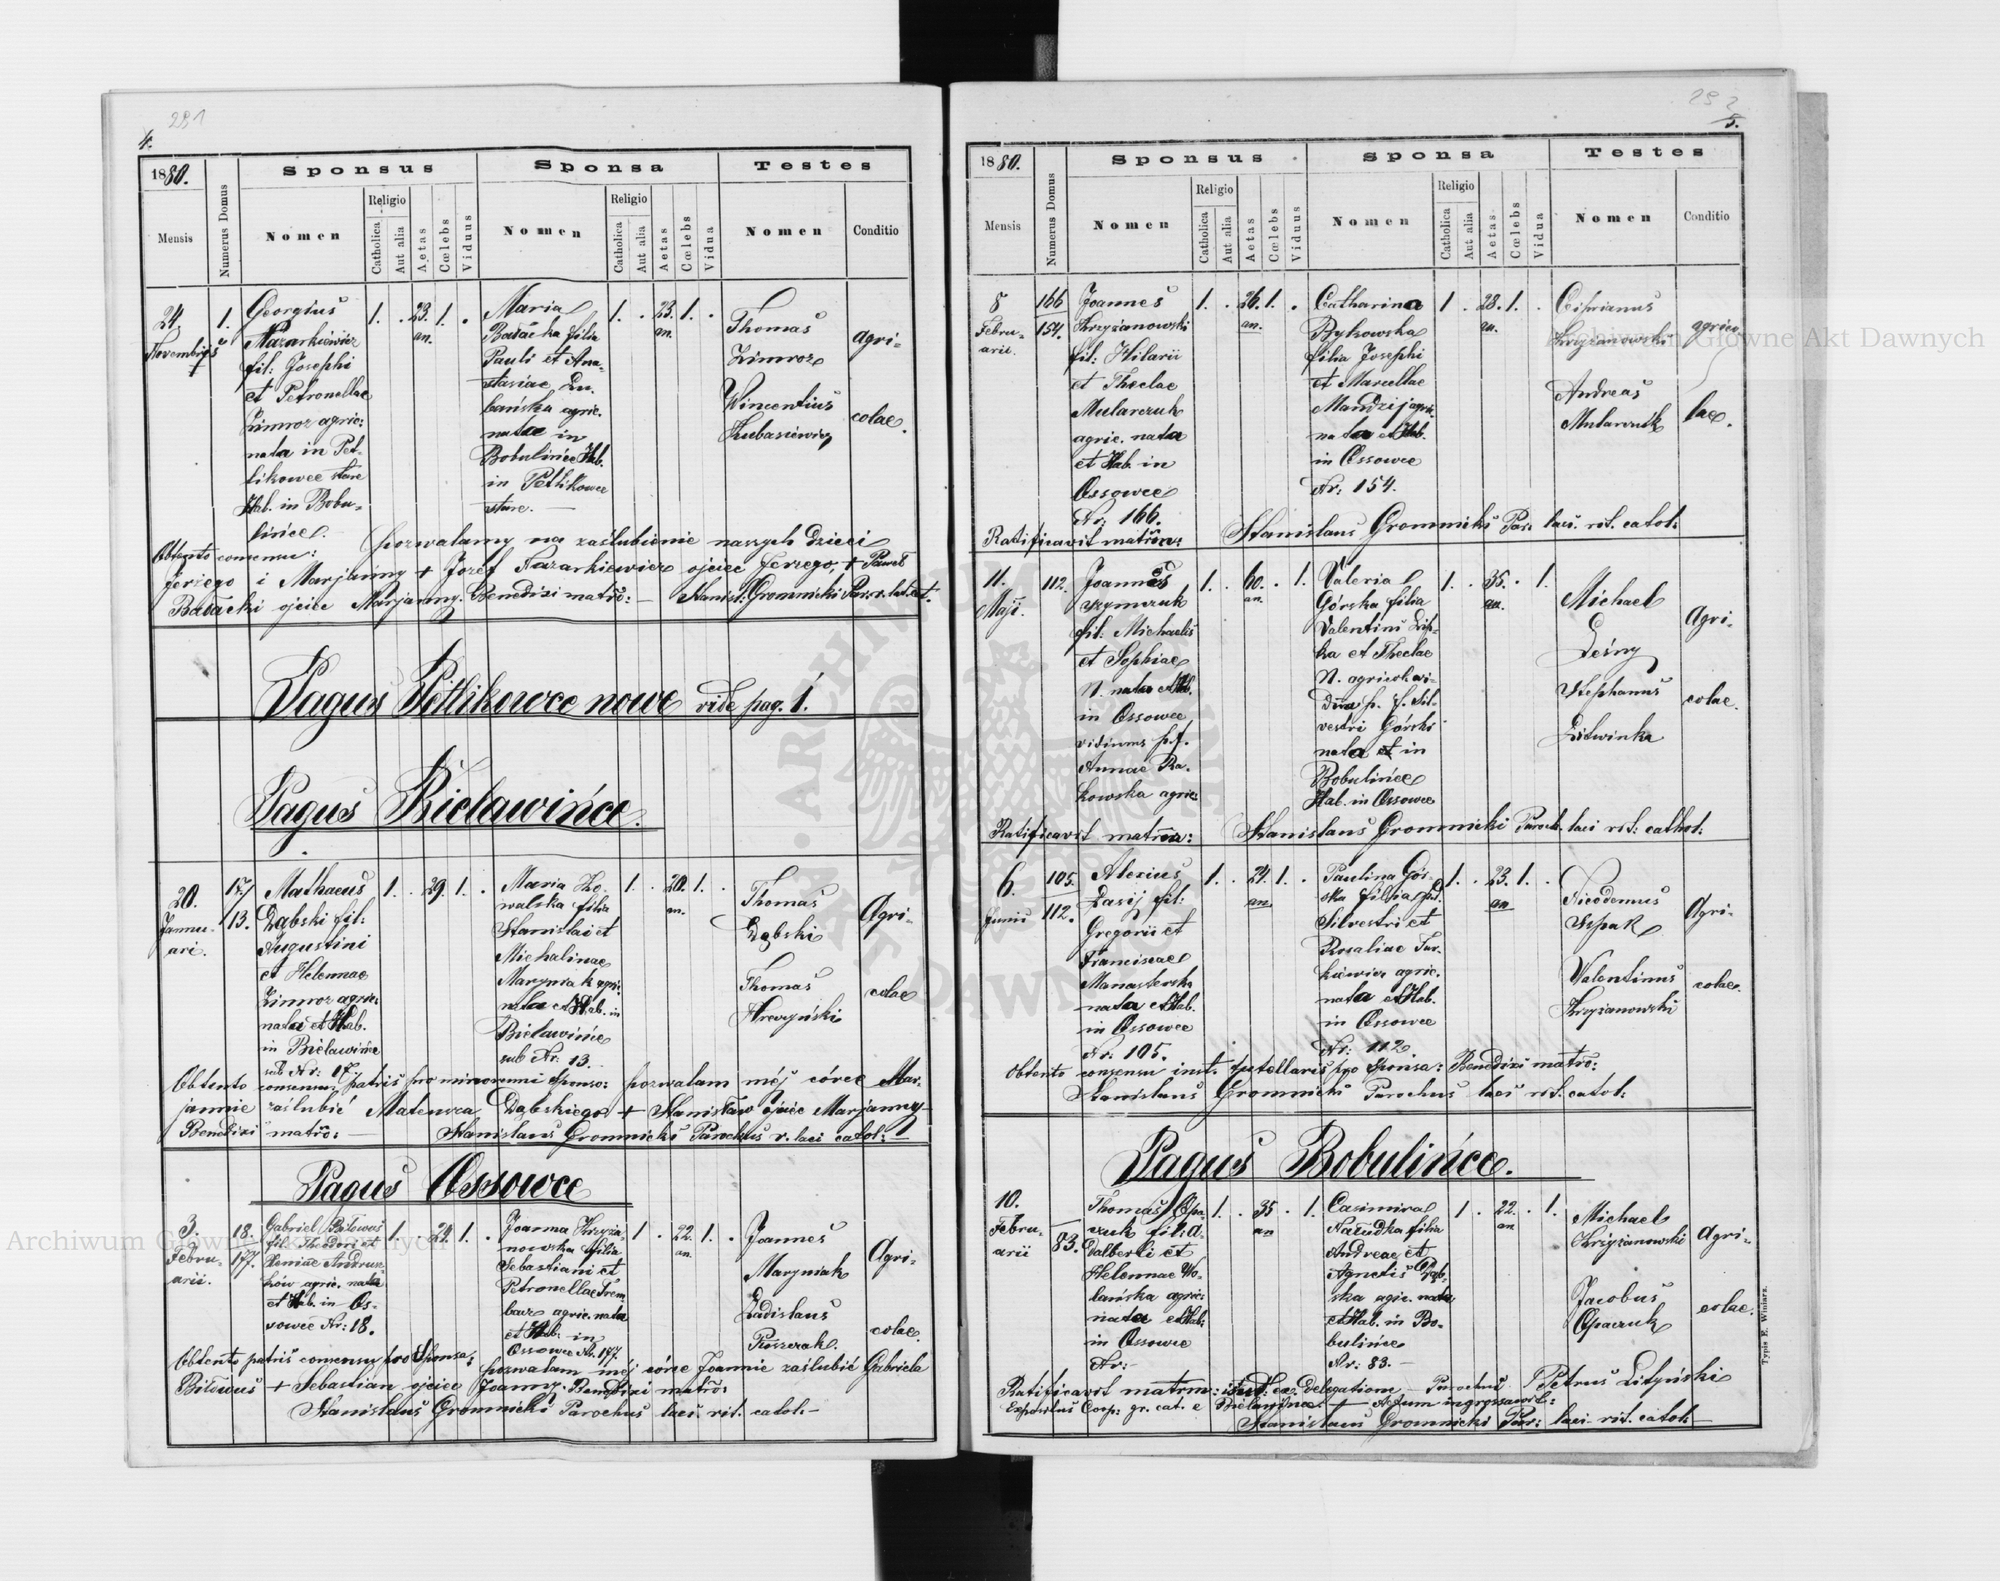 291
4.
1880.
Sponsus
Sponsa
Testes
Mensis
Numerus Domus
Nomen
Religio
Catholica
Aut alia
Aetas
Cœlebs
Viduus
Nomen
Religio
Catholica
Aut alia
Aetas
Cœlebs
Vidua
Nomen
Conditio
24.
Novembris
1.
Georgius
Nazarkiewicz
fil: Josephi
et Petronellae
Zimroz agric:
nata in Pet-
likowce stare
Hab. in Bobu-
lińce.
1. . 23. 1. .
an.
Maria
Bałacka filia
Pauli et Ana-
stasiae
agric.
nata in
Bobulińce Hab.
in Petlikowce
stare.
1. . 23. 1. .
an.
Thomas
Zimroz
Wincentius
Kubasiewicz
agri-
colae.
Obtento consensu: pozwalamy na zaślubienie naszych dzieci
Jerzego i Marjanny + Józef Nazarkiewicz ojciec Jerzego, + Paweł
Bałacki ojciec Marjanny. Benedixi matrō: Stanisl: Gromnicki Par. r. lat. cat.
Pagus Petlikowce nowe vide pag. 1.
Pagus Bielawińce.
20.
Januu-
ari.
17/
13.
Mathaeus
Dąbski fil:
Augustini
et Helennae
Zimroz agric:
nata et Hab.
in Bielawińce
sub Nr: 17.
1. . 29. 1. .
Maria Ko-
walska filia
Stanislai et
Michalinae
Maryniak agric.
nata et Hab. in
Bielawińce
sub Nr: 13.
1. . 20. 1. .
an.
Thomas
Dąbski
Thomas
Agri-
colae
Obtento consensu patris pro minorenni Sponso: pozwalam mej córce Mar-
jannie zaślubić Mateusza Dąbskiego + Stanisław ojciec Marjanny
Benedixi matrō: Stanislaus Gromnicki Parochus r. laci catol:
Pagus Ossowce
3.
Febru-
arii.
18.
177.
Gabriel Biłowus
fil. Theodori et
Xeniae Andrusz-
ków agric. nata
et Hab. in Os-
sowce Nr: 18.
1. . 24. 1. .
Joanna Krzyża-
nowska filia
Sebastiani et
Petronellae Trem-
bacz agric. nata
et Hab. in
Ossowce Nr. 177.
1 . 22. 1. .
an.
Joannes
Maryniak
Ladislaus
Agri-
colae.
Obtento patris consensu pro Sponsa: pozwalam mej córce Joannie zaślubić Gabriela
Biłowus + Sebastian ojciec Joanny. Benedixi matrō:
Stanislaus Gromnicki Parochus laci rit. catol:
292
5.
1880.
Sponsus
Sponsa
Testes
Mensis
Numerus Domus
Nomen
Religio
Catholica
Aut alia
Aetas
Cœlebs
Viduus
Nomen
Religio
Catholica
Aut alia
Aetas
Cœlebs
Vidua
Nomen
Conditio
8
Febru-
arii.
166
154.
Joannes
Krzyżanowski
fil: Hilarii
et Theclae
Mularczuk
agric. nata
et Hab. in
Ossowce
Nr: 166.
1. . 26. 1. .
an.
Catharina
Bykowska
filia Josephi
et Marcellae
Mandzij agric.
nata et Hab.
in Ossowce
Nr: 154.
1 . 28. 1. .
an.
Ciprianus
Krzyżanowski
Andreas
Mularczuk
agrico-
lae.
Ratificavit matrim: Stanislaus Gromnicki Par. laci. rit. catol:
11.
Maji.
112.
Joannes
Szymczuk
fil: Michaelis
et Sophiae
N. nata et Hab.
in Ossowce
viduus p. f.
Annae Ra-
kowska agric:
1. . 60. . 1.
an.
Valeria
Górska filia
Valentini Lip-
ka et Theclae
N. agricol. vi-
dua p. f. Sil-
vestri Górski
nata et in
Bobulińce
Hab. in Ossowce
1. . 35. . 1.
an.
Michael
Leśny
Stephanus
Litwinka
Agri-
colae.
Ratificavit matrim: Stanislaus Gromnicki Paroch. laci rit: cathol:
6.
Junii
105.
112.
Alexius
Łasij fil:
Gregorii et
Franciscae
Manasterska
nata et Hab.
in Ossowce
Nr: 105.
1. . 24. 1. .
an.
Paulina Gór-
ska filia pd.
Silvestri et
Rosaliae Jur-
kiewicz agric.
nata et Hab.
in Ossowce
Nr: 112
1. . 23. 1. .
an
Nicodemus
Szpak
Valentinus
Krzyżanowski
Agri-
colae.
Obtento consensu inst. tutellaris pro Sponsa: Benedixi matrō:
Stanislaus Gromnicki Parochus laci rit. catol:
Pagus Bobulińce.
10.
Febru-
arii
83.
Thomas Opa-
czuk fil: A-
dalberti et
Helennae Wo-
lańska agric:
nata et Hab:
in Ossowce
Nr:-
1. . 35 . 1.
an
Casimira
filia
Andreae et
Agnetis Dąb-
ska agic. nata
et Hab. in Bo-
bulińce
Nr: 83.-
1 . 22. . 1.
an
Michael
Krzyżanowski
Jacobus
Opaczuk
Agri-
colae.
Ratificavit matrm: Delegatione Parochus Petrus Lityński
Expositus Coop: gr. cat. e Bielawińce. + Actum ingrossavit:
Stanislaus Gromnicki Par: laci rit. catol:
Typis E. Winiarz.
Archiwum Główne Akt Dawnych
Archiwum Główne Akt Dawnych
ARCHIWUM GŁÓWNE AKT DAWNYCH